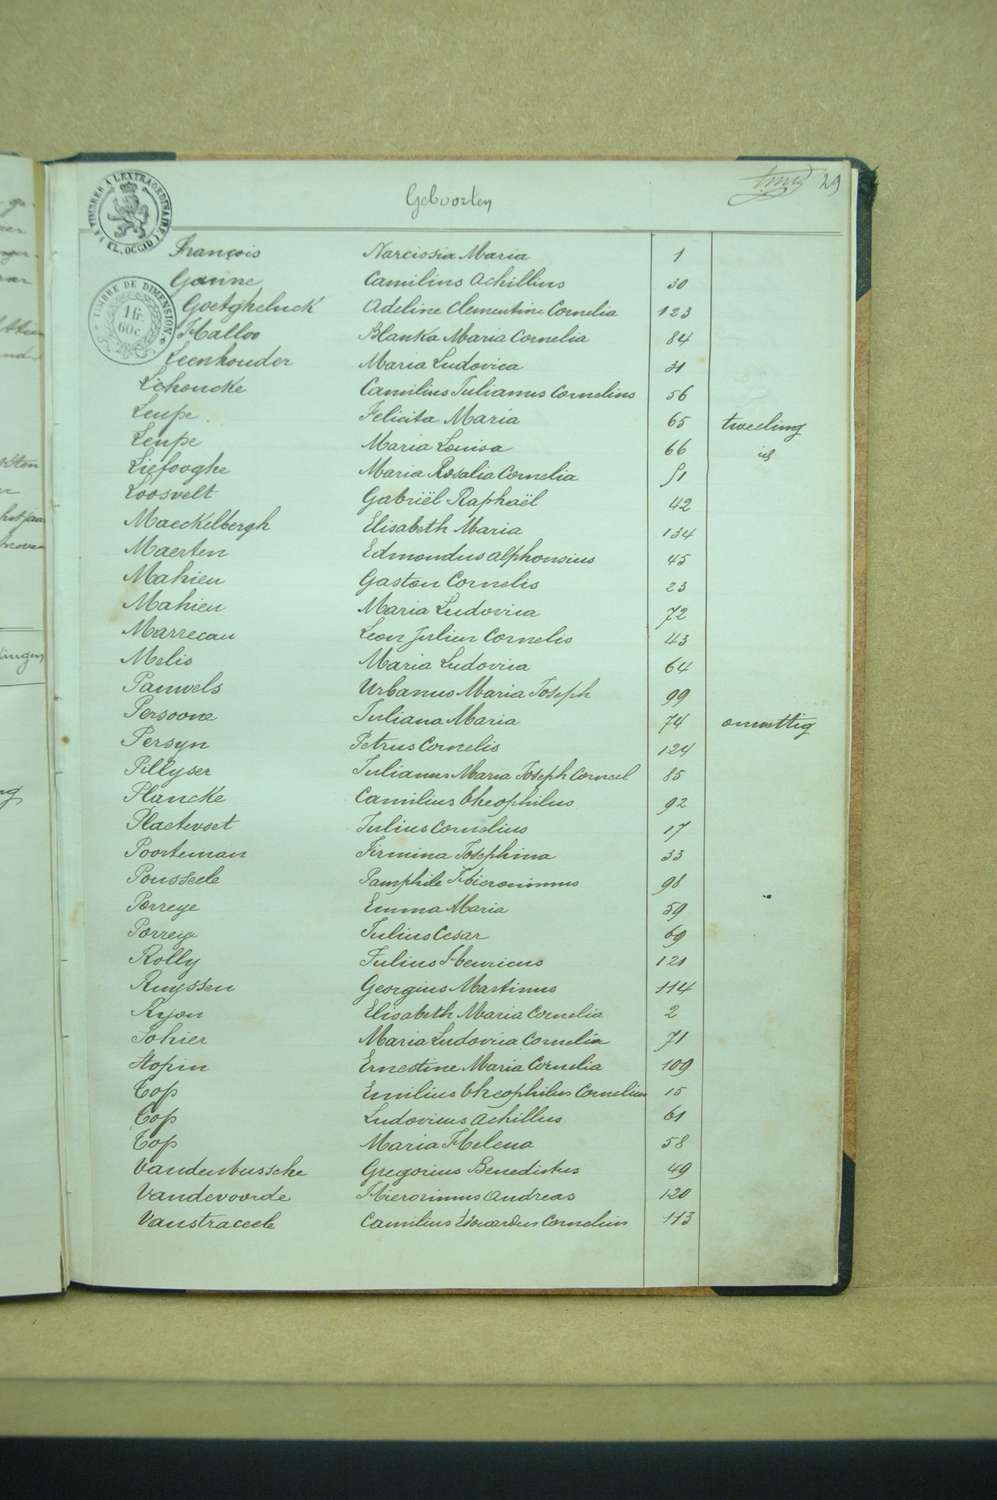 Geboorten 29
TIMBRER A L'EXTRAORDINAIRE
FL. OCCID
TIMBRE DE DIMENSION
1 fr. 60 c.
François Narcissia Maria 1
Ganne Camilius Achillius 30
Goetgheluck Adeline Clementine Cornelia 123
Halloo Blanka Maria Cornelia 84
Leenhouder Maria Ludovica 31
Lehoucke Camilius Julianus Cornelius 56
Leupe Felicita Maria 65 tweeling
Leupe Maria Louisa 66 id
Liefooghe Maria Rosalia Cornelia 51
Loosvelt Gabriël Raphaël 42
Maeckelbergh Elisabeth Maria 134
Maerten Edmondus alphonsius 45
Mahieu Gaston Cornelis 23
Mahieu Maria Ludovica 72
Marrecau Leon Julien Cornelis 43
Melis Maria Ludovica 64
Pauwels Urbanus Maria Joseph 99
Persoone Juliana Maria 74 onwettig
Persyn Petrus Cornelis 124
Pillyser Julianus Maria Joseph Corneel 85
Plancke Camilius Theophilus 92
Plaetevoet Julius Cornelius 17
Poorteman Firmina Josephina 33
Pousseele Pamphile Hieronimus 98
Porreye Emma Maria 59
Porreye Julius Cesar 69
Rolly Julius Henricus 121
Ruyssen Georgius Martinus 114
Ryon Elisabeth Maria Cornelia 2
Sohier Maria Ludovica Cornelia 71
Stopin Ernestine Maria Cornelia 109
Top Emilius Theophilus Cornelius 15
Top Ludovicus Achillus 61
Top Maria Helena 58
Vandenbussche Gregorius Benedictus 49
Vandevoorde Hieronimus Andreas 120
Vanstraceele Camilius Edouardus Cornelius 113